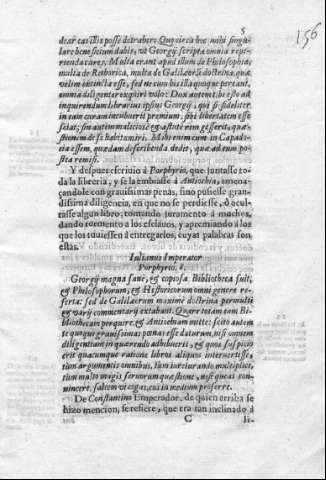 5
156
dear cas illis posse detrahere. Quocirca hoc mihi singu-
lare beneficium dabis, vt Georgij scripta omnia repe-
rienda cures, Multa erant apud illum de Philosophia,
multa de Rethorica, multa de Galilæorum doctrina, quæ
velim extincta esse, sed ne cum his illa quoque pereant,
omnia diligenter exquiri volo: Dux autem tibi esto ad
inquirendum librarius ipsius Georgij, qui si fideliter
in eam curam incubuerit premium, sibi libertatem esse
sciat; sin autem malitiose & astute rem gesserit, quæ-
stionem de se habitum iri. Mihi enim cum in Capado-
cia essem, quædam describenda dedit, quæ ad eum po-
stea remisi.
Y despues escriuio à Porphyrio, que juntasse to-
da la libreria, y se la embiasse à Antiochia, amena-
çandole con grauissimas penas, sino pusiesse gran-
dissima diligencia, en que no se perdiesse, ò ocul-
tasse algun libro, tomando juramento à muchos,
dando tormento a los esclauos, y apremiando à los
que los tuuiessen à entregarlos, cuyas palabras son
estas.
Iulianus Imperator
Porphyrio, s.
Georgij magna sanè, & copiosa Bibliotheca fuit,
& Philosophorum, & Historicorum omni genere re-
ferta: sed de Galilæorum maximè doctrina permulti
& varij commentarij extabant. Quare totam eam Bi-
bliothecam perquire, & Antiochiam mitte: scito autem
te quoque grauissimas pœnas esse daturum, nisi omnem
diligentiam in quærendo adhibueris, & quos suspicio
erit quacumque ratione libros aliquos intervertisse,
tùm argumentis omnibus, tùm iureiurando multiplici,
tùm multo magis seruorum quæstione, nisi queas con-
vincere, saltem vt cogas, eos in medium proferre.
De Constantino Emperador, de quien arriba se
hizo mencion, se refiere, que era tan inclinado à
C
li-